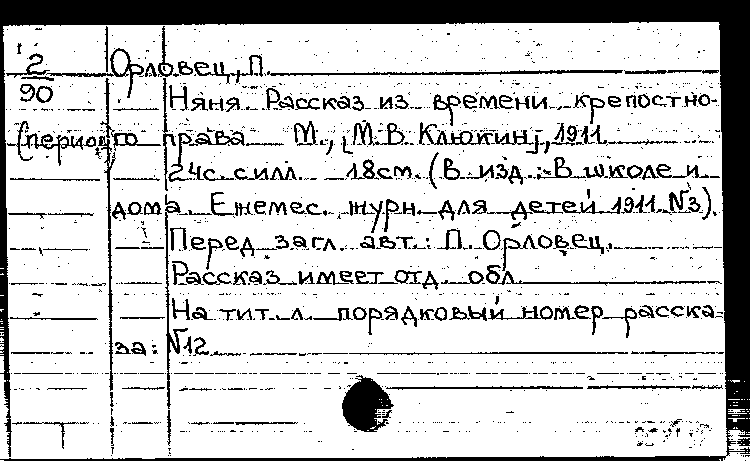 2 Орловец, П.
90 Няня. Рассказ из времени крепостно-
(период) го права М., [М.В. Клюкин], 1911.
24с. с илл. 18см. (В изд.: В школе и
дома. Ежемес. журн. для детей 1911. №3).
Перед загл. авт.: П. Орловец.
Рассказ имеет отд. обл.
На тит. л. порядковый номер расска-
за: №12.